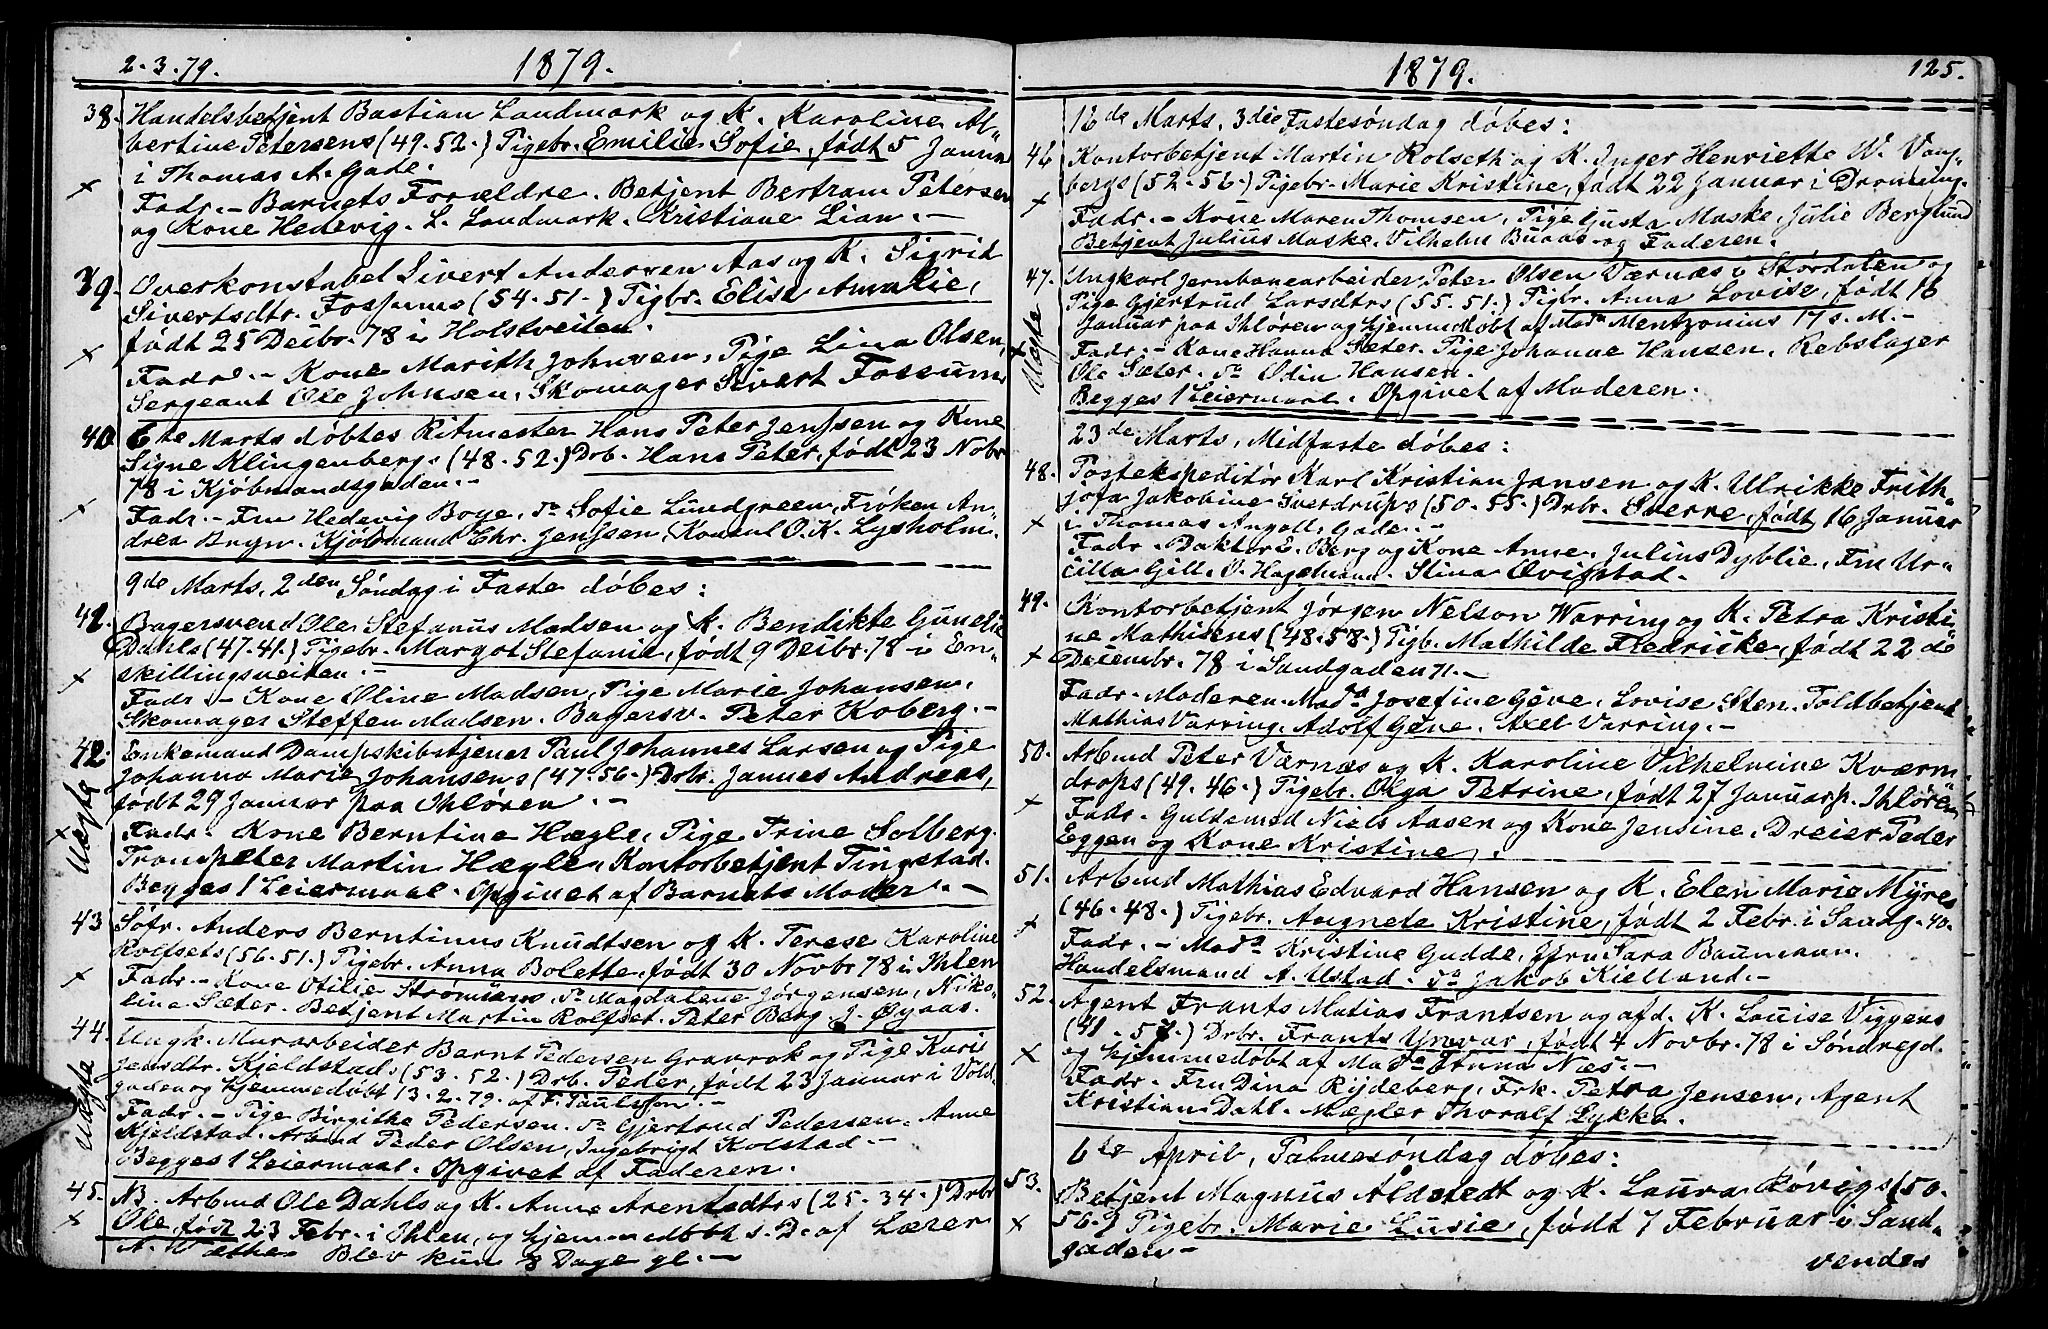 2.3.79. 1879.
38. Handelsbetjent Bastian Landmark og K. Karoline Al-
bertine Petersens (49.52.) Pigebr. Emilie Sofie, født 5 Januar
i Thomas A. Gade.
Fadr. - Barnets Forældre. Betjent Bertram Petersen
og Kone Hedevig. L. Landmark. Kristiane Lian. -
39. Overkonstabel Sivert Andersen Aas og K. Sigrid
Sivertsdtr. Fossums (54.51.) Pigbr. Elise Amalie,
født 25 Decbr. 78 i Holstveiten.
Fadr. - Kone Marith Johnsen, Pige Lina Olsen,
Sergeant Ole Johnsen, Skomager Sivert Fossum
40. 6te Marts døbtes Ritmester Hans Peter Jenssen og Kone
Signe Klingenbergs (48.52.) Drb. Hans Peter, født 23 Nobr
78 i Kjøbmandsgaden. -
Fadr. - Fru Hedevig Boye, Do Sofie Lundgreen, Frøken An-
drea Bryn. Kjøbmand Chr. Jenssen, Konsul O. K. Lysholm.
9de Marts, 2den Søndag i Faste døbes:
41. Bagersvend Ole Stefanus Madsen og K. Bendikte Gunelie
Dahls (47.41.) Pigebr. Margot Stefanie, født 9 Decbr. 78 i En-
skillingsveiten. -
Fadr - Kone Oline Madsen, Pige Marie Johansen,
Skomager Steffen Madsen. Bagersv. Peter Koberg. -
42. Enkemand Dampskibstjener Paul Johannes Larsen og Pige
Uægte Johanna Marie Johansens (47.56.) Drbr. Jannes Andreas,
født 29 Januar paa Ihløren. -
Fadr. Kone Berntine Hægle, Pige Trine Solberg.
Trompeter Martin Hægle, Kontorbetjent Tingstad.
Begges 1 Leiermaal. Opgivet af Barnets Moder. -
43. Søfr. Anders Berntinus Knudtsen og K. Terese Karoline
Rolfsets (56.51.) Pigebr. Anna Bolette, født 30 Novbr 78 i Ihlen
Fadr. - Kone Otilie Strømsøes, Do Magdalene Jørgensen, Niko-
lina Sæter. Betjent Martin Rolfset. Peter Berg J. Øyaas.
44. Ungk. Murarbeider Bernt Pedersen Gravrok og Pige Kari
Uægte Jensdtr. Kjeldstads (53.52.) Drb. Peder, født 23 Januar i Vold-
gaden og hjemmedøbt 13.2.79. af F. Paulsson. -
Fadr. - Pige Birgithe Pedersen. Do Gjertrud Pedersen. Anne
Kjeldstad. Arbmd Peder Olsen, Ingebrigt Kolstad -
Begges 1 Leiermaal. Opgivet af Faderen.
45. NB. Arbmd Ole Dahls og K. Anne Arentsdtrs (25.34.) Drbr
Ole, født 23 Febr. i Ihlen, og hjemmedøbt s. D. af Lærer
A. Væthe. Blev kun 8 Dage gl. -
1879. 125.
16de Marts, 3die Fastesøndag døbes:
46 Kontorbetjent Martin Rolseth og K. Inger Henriette W. Vang-
bergs (52.56.) Pigebr. Marie Kristine, født 22 Januar i Dronning.
Fadr. - Kone Maren Thomsen, Pige Gusta Maske, Julie Berglund
Betjent Julius Maske. Vilhelm Buaas og Faderen.
47. Ungkarl Jernbanearbeider Peter Olsen Værnæs i Størdalen og
Uægte Pige Gjertrud Larsdtrs (55.51.) Pigbr. Anna Lovise, født 16
Januar paa Ihløren og hjemmedøbt af Mada Mentzonius 17 s. M. -
Fadr. - Kone Hanna Sæter. Pige Johanne Hansen. Rebslager
Ole Sæter. Do Odin Hansen.
Begges 1 Leiermaal. Opgivet af Moderen.
23de Marts, Midfaste døbes:
48. Postekspeditør Karl Kristian Jansen og K. Ulrikke Frith-
jofa Jakobine Sverdrups (50.55.) Drbr. Sverre, født 16 Januar
i Thomas Angell. Gade. -
Fadr. Doktor E. Berg og Kone Anne. Julius Dyblie, Fru Ur-
cilla Gill. O. Hagemann. Stina Qvigstad.
49. Kontorbetjent Jørgen Nelson Warring og K. Petra Kristi-
ne Mathisens (48.58.) Pigb. Mathilde Fredricke, født 22de
Decembr. 78 i Sandgaden 71. -
Fadr. Moderen. Mada Josefine Gève, Lovise Sten. Toldbetjent
Mathias Varring. Adolf Gève. Axel Varring. -
50. Arbmd Peter Værnæs og K. Karoline Vilhelmine Kværn-
drops (49.46.) Pigebr. Olga Petrine, født 27 Januar p. Ihløren
Fadr. Guldsmed Niels Aasen og Kone Jensine. Dreier Peder
Eggen og Kone Kristine.
51. Arbmd Mathias Edvard Hansen og K. Elen Marie Myres
(46.48.) Pigebr. Angnete Kristine, født 2 Febr. i Sandg. 40.
Fadr. - Mada Kristine Gudde, Jfru Sara Baumann.
Handelsmand A. Ustad. Do Jakob Kielland. -
52. Agent Frants Matias Frantsen og afd. K. Louise Viggens
(41.57.) Drbr. Frants Yngvar, født 4 Novbr. 78 i Søndregd.
og hjemmedøbt af Mada Anna Næs. -
Fadr. Fru Dina Rydeberg, Frk. Petra Jensen, Agent
Kristian Dahl. Mægler Thoralf Lykke.
6te April, Palmesøndag døbes:
53. Betjent Magnus Aldstedt og K. Laura Røvigs (50.
56.) Pigebr. Marie Lusie, født 7 Februar i Sand-
gaden -
vendes